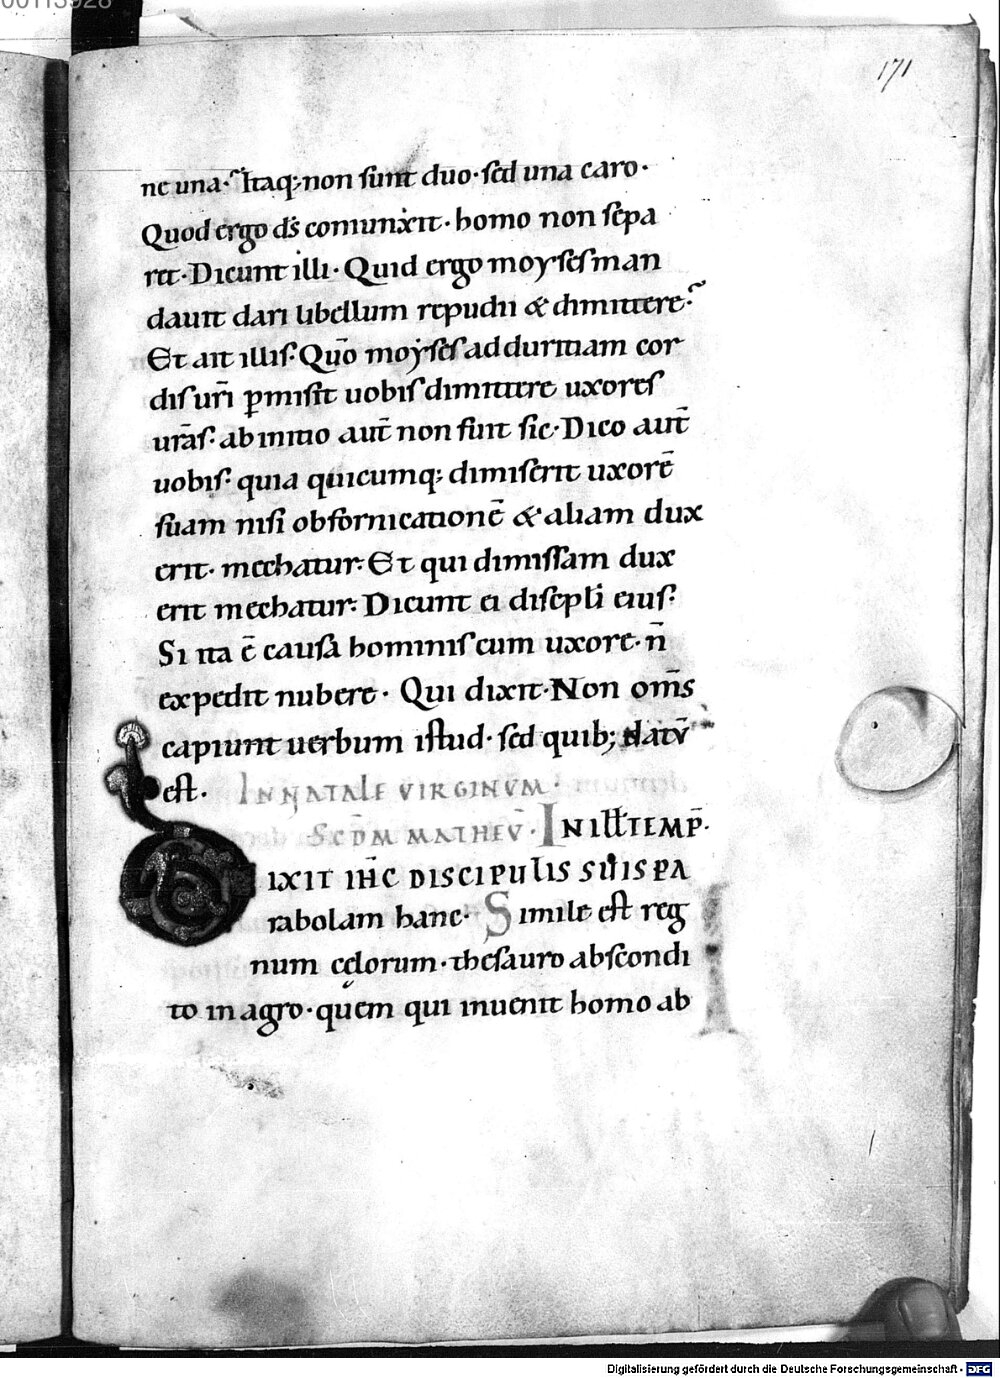 00113928
171
ne una. Itaq; non sunt duo. sed una caro.
Quod ergo d̄s coniunxit. homo non sepa
ret. Dicunt illi. Quid ergo moyses man
dauit dari libellum repudii & dimittere.
Et ait illis. Quō moyses ad duritiam cor
dis ur̄i ꝑmisit uobis dimittere uxores
ur̄as. ab initio aut̄ non fuit sic. Dico aut̄
uobis. quia quicumq; dimiserit uxorē
suam nisi ob fornicationē & aliam dux
erit. mechatur. Et qui dimissam dux
erit mechatur. Dicunt ei discipli eius.
Si ita ē causa hominis cum uxore. n̄
expedit nubere. Qui dixit. Non om̄s
capiunt uerbum istud. sed quib; datū
est. IN NATALE VIRGINVM.
SCDM MATHEV̄. IN ILL TEMP̄.
DIXIT IHC DISCIPULIS SUIS PA
rabolam hanc. Simile est reg
num celorum. thesauro abscondi
to in agro. quem qui inuenit homo ab
Digitalisierung gefördert durch die Deutsche Forschungsgemeinschaft - DFG